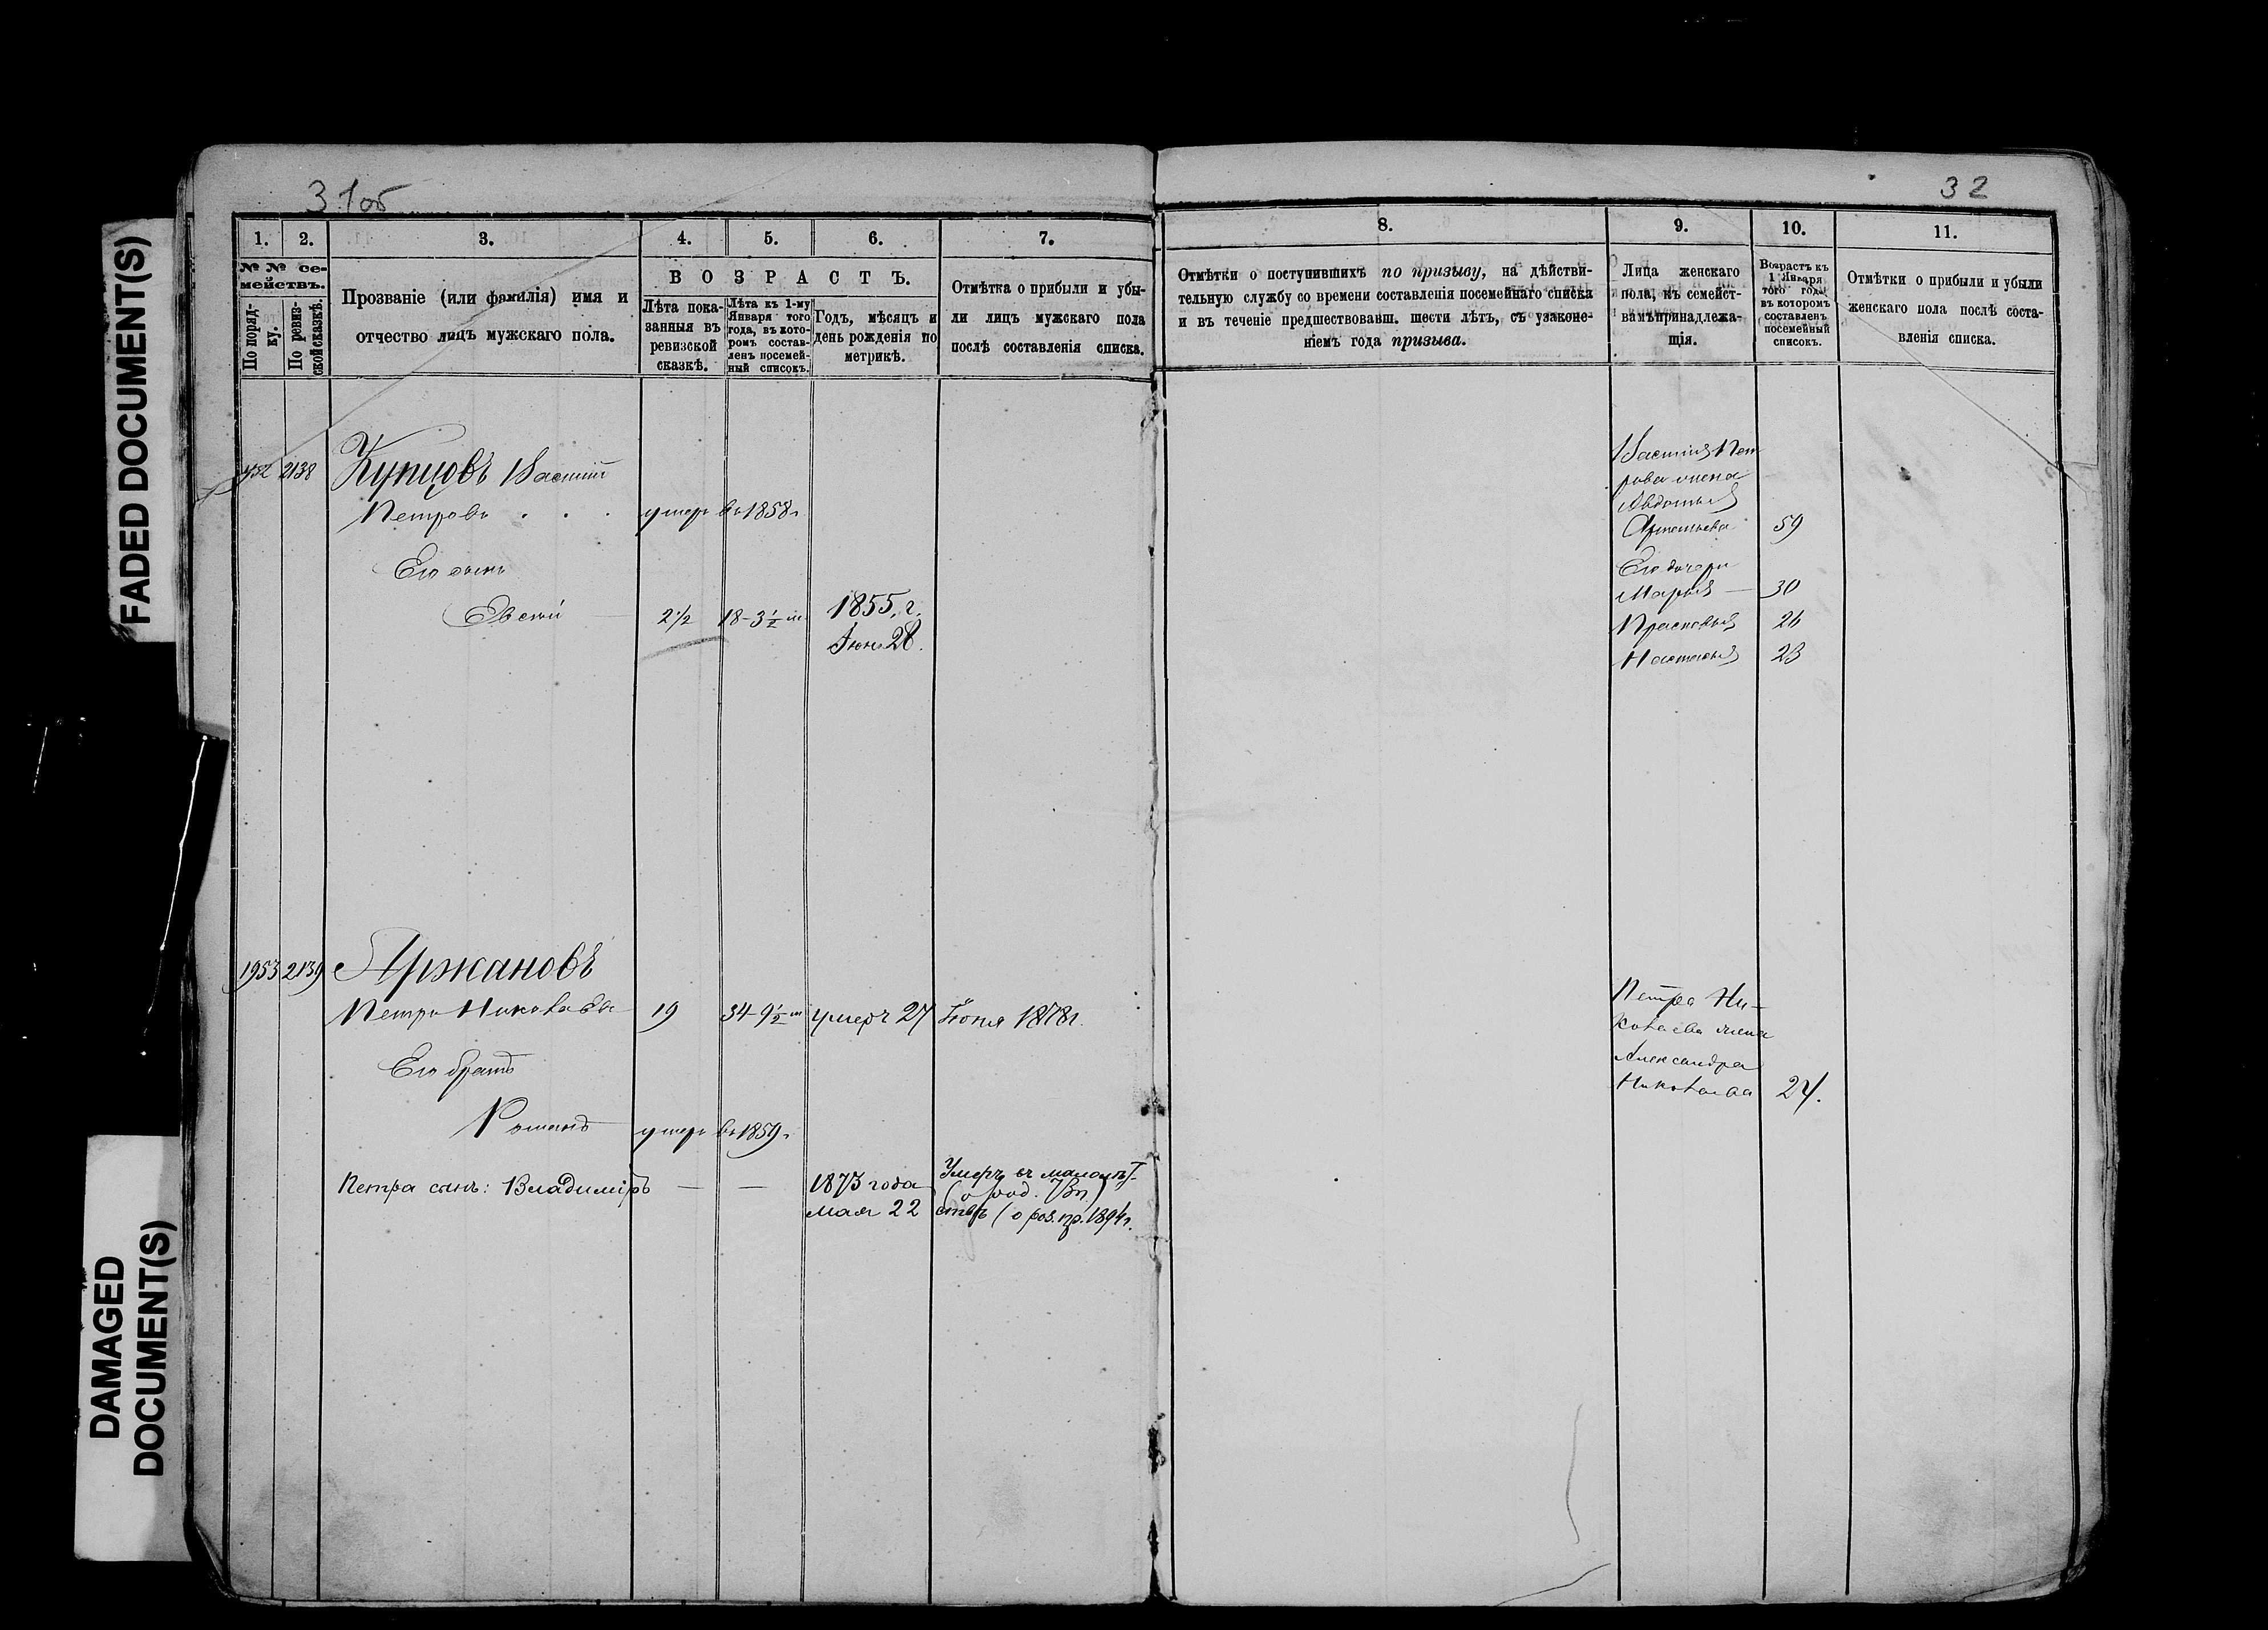 FADED DOCUMENT(S)
DAMAGED
DOCUMENT(S)
31об
32
1. 2. 3. 4. 5. 6. 7.
№ № се-
мействъ.
По поряд-
ку.
По ревиз-
ской сказкѣ.
Прозваніе (или фамилія) имя и
отчество лицъ мужскаго пола.
В О З Р А С Т Ъ.
Лѣта пока-
занныя въ
ревизской
сказкѣ.
Лѣта къ 1-му
Января того
года, въ кото-
ромъ состав-
ленъ посемей-
ный списокъ.
Годъ, мѣсяцъ и
день рожденія по
метрикѣ.
Отмѣтка о прибыли и убы-
ли лицъ мужскаго пола
послѣ составленія списка.
8. 9. 10. 11.
Отмѣтки о поступившихъ по призыву, на дѣйстви-
тельную службу со времени составленія посемейнаго списка
и въ теченіе предшествовавш. шести лѣтъ, съ узаконе-
ніемъ года призыва.
Лица женскаго
пола, къ семейст-
вамъ принадлежа-
щія.
Возрастъ къ
1 Января
того года
въ которомъ
составленъ
посемейный
списокъ.
Отмѣтки о прибыли и убыли
женскаго пола послѣ соста-
вленія списка.
2138 Купцовъ Василій
Петровъ . . . умеръ въ 1858г
Его сынъ
Евсей 2½ 18-3½ м 1855 г.
Іюн. 28.
Василія Пет
рова жена
Авдотья
59
Его дочери
Марья — 30
Прасковья 26
Настасья 23
1953 2139 Аржановъ
Петръ Николаевъ 19 34-9½ м умеръ 27 Іюня 1878г.
Его братъ
Романъ умеръ въ 1859г
Петра сынъ: Владиміръ — — 1873 года
мая 22
Умеръ въ малолѣт-
ствѣ (о роз. пр. 1894г.
Петра Ни-
колаева жена
Александра
Николаева 24.